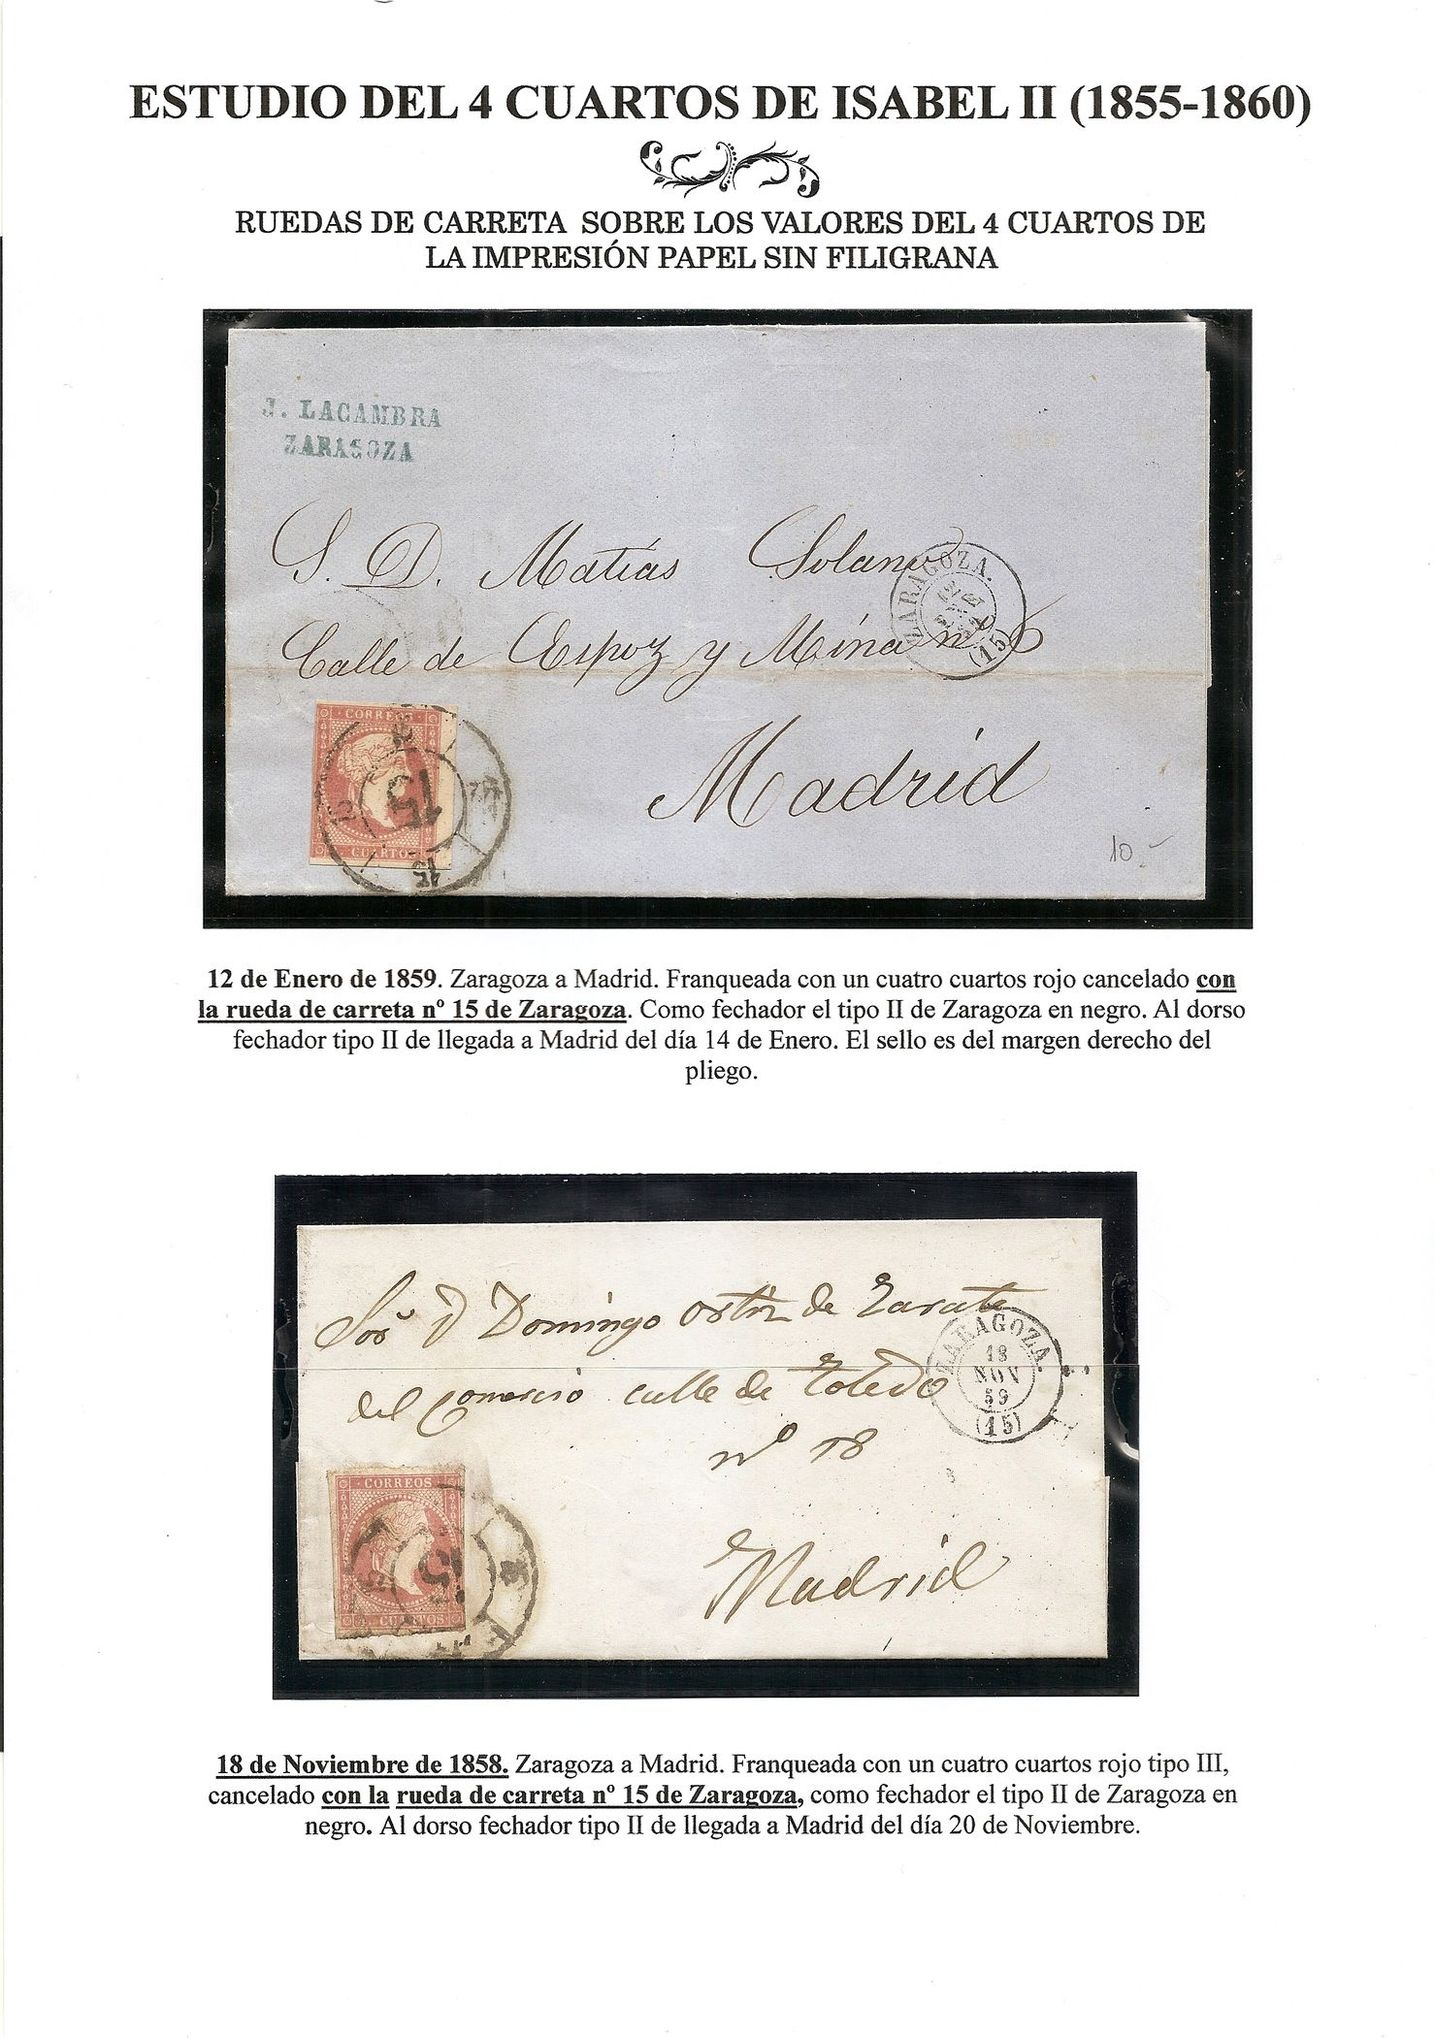 ESTUDIO DEL 4 CUARTOS DE ISABEL II (1855-1860)
RUEDAS DE CARRETA SOBRE LOS VALORES DEL 4 CUARTOS DE
LA IMPRESIÓN PAPEL SIN FILIGRANA
J. LACAMBRA
ZARAGOZA
S. D. Matías Solano
Calle de Espoz y Mina nº 6
Madrid
ZARAGOZA.
12
(15)
CORREOS
CUARTO
15
10-
12 de Enero de 1859. Zaragoza a Madrid. Franqueada con un cuatro cuartos rojo cancelado con
la rueda de carreta nº 15 de Zaragoza. Como fechador el tipo II de Zaragoza en negro. Al dorso
fechador tipo II de llegada a Madrid del día 14 de Enero. El sello es del margen derecho del
pliego.
Sor D Domingo Ortiz de Zarate
del Comercio calle de Toledo
nº 18
Madrid
ZARAGOZA.
18
NOV
59
(15)
CORREOS
4 CUARTOS
15
18 de Noviembre de 1858. Zaragoza a Madrid. Franqueada con un cuatro cuartos rojo tipo III,
cancelado con la rueda de carreta nº 15 de Zaragoza, como fechador el tipo II de Zaragoza en
negro. Al dorso fechador tipo II de llegada a Madrid del día 20 de Noviembre.